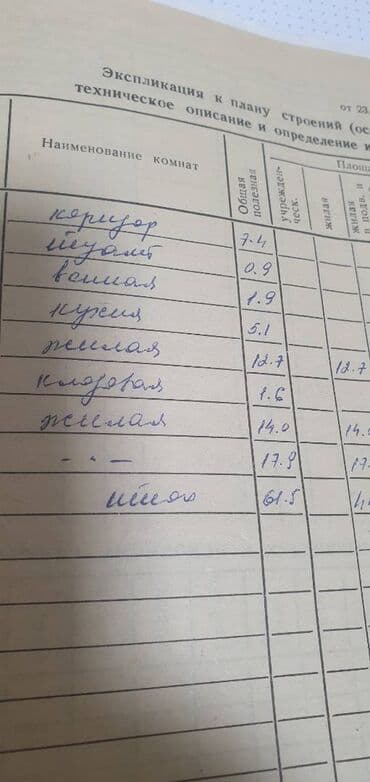 от 23.
Экспликация к плану строений (ос
техническое описание и определение и
Наименование комнат
Общая полезная
Площа
учрежден-
ческ.
жилая
жилая
в подв. и
коридор 7.4
туалет 0.9
ванная 1.9
кухня 5.1
жилая 12.7 12.7
кладовая 1.6
жилая 14.0 14.
—"— 17.9 17.
итого 61.5